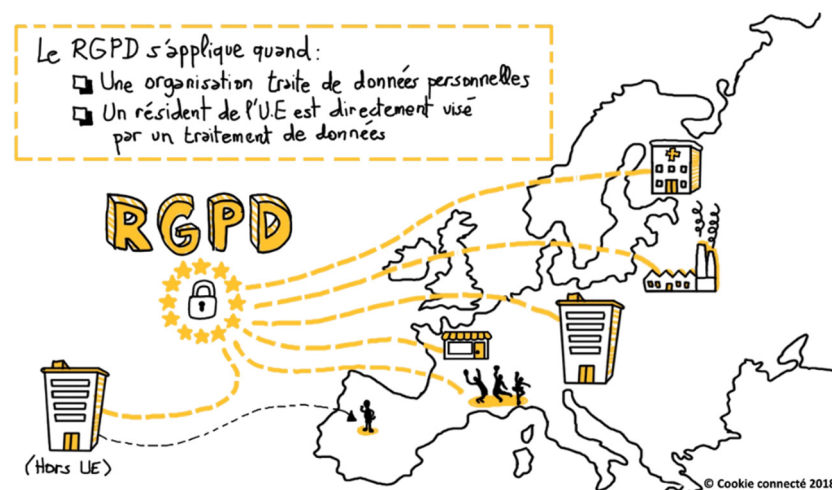 Le RGPD s'applique quand:
Une organisation traite de données personnelles
Un résident de l'U.E est directement visé
par un traitement de données
RGPD
(Hors UE)
© Cookie connecté 2018